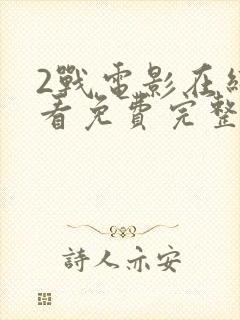 2戰電影在線
看免費完整
詩人亦安